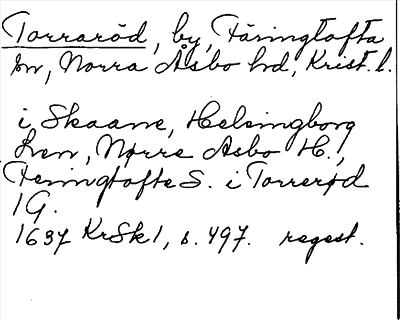 Torraröd, by, Färingtofta
sn, Norra Åsbo hd, Krist. l.
i Skaane, Helsingborg
Len, Nørre Asbo H.,
Feringtofte S. i Torrerød
1 G.
1637 KrSk1, s. 497. regest.